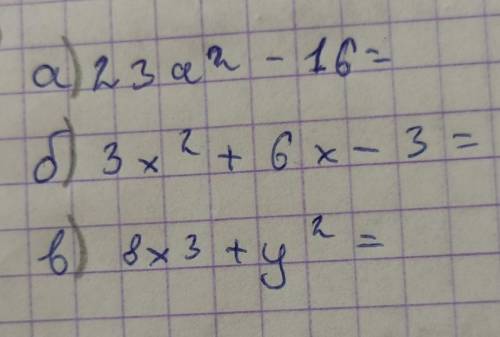 а) 23a² - 16 =
б) 3x² + 6x - 3 =
в) 8x3 + y² =